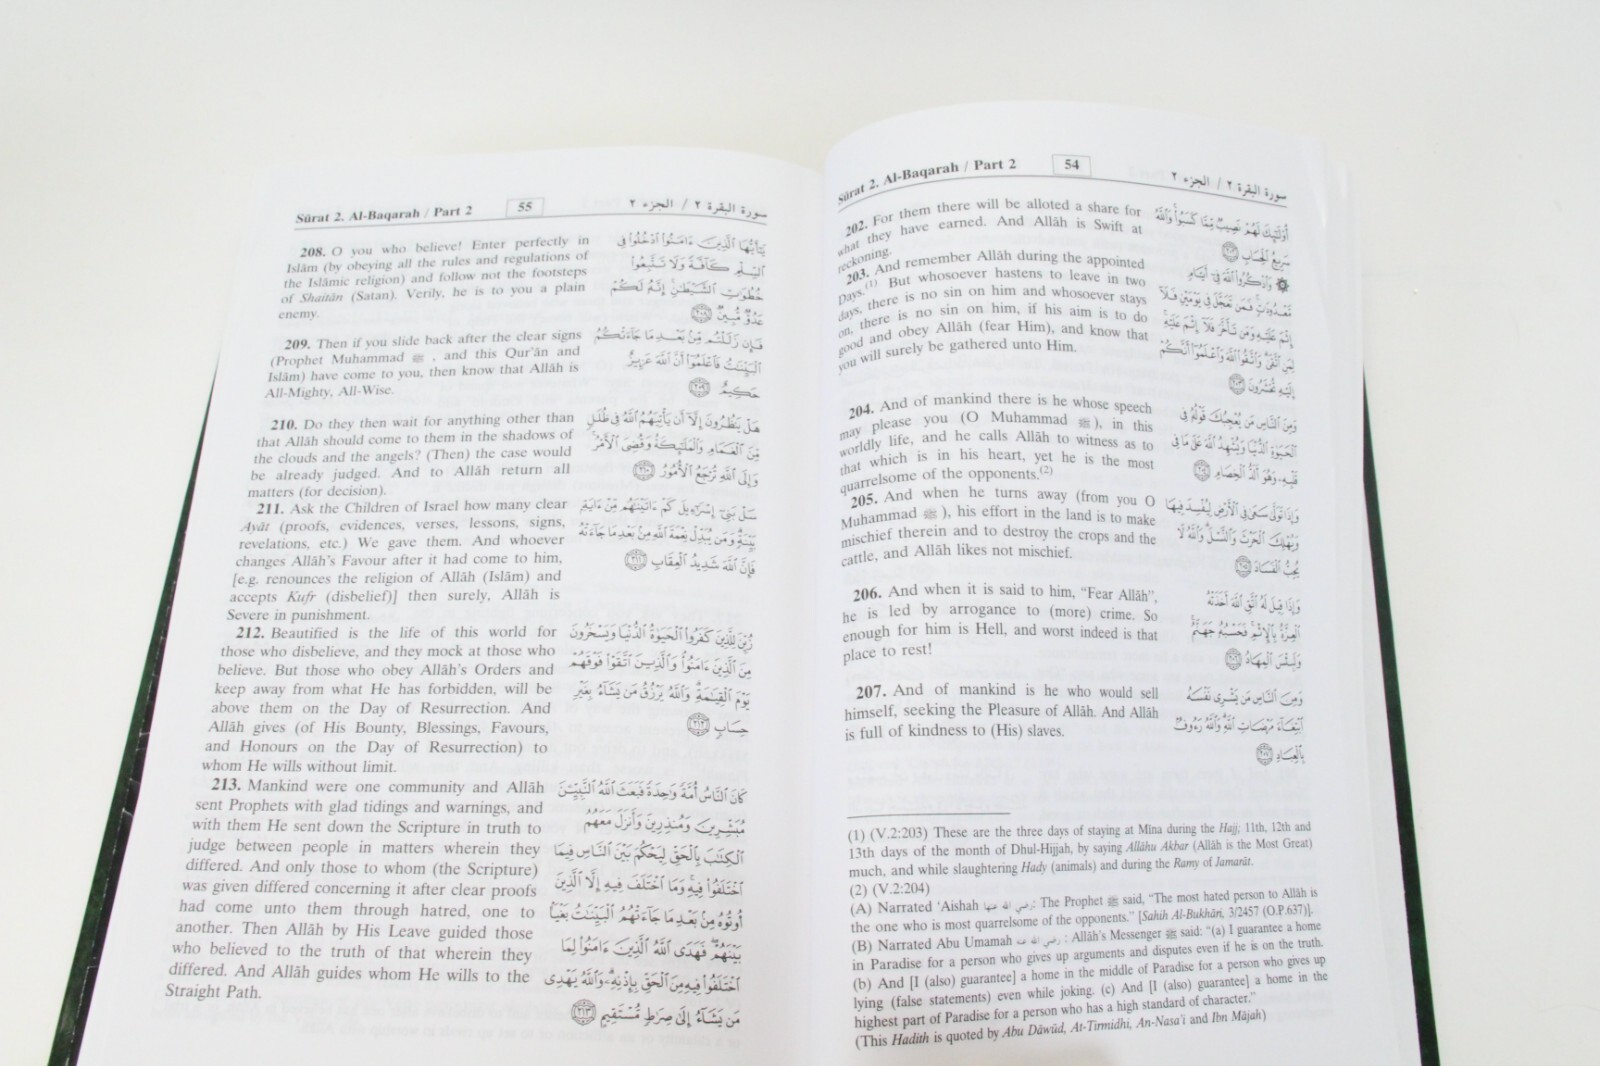 Sûrat 2. Al-Baqarah / Part 2
54
سورة البقرة ٢ / الجزء ٢
202. For them there will be alloted a share for
what they have earned. And Allâh is Swift at
reckoning.
203. And remember Allâh during the appointed
Days.(1) But whosoever hastens to leave in two
days, there is no sin on him and whosoever stays
on, there is no sin on him, if his aim is to do
good and obey Allâh (fear Him), and know that
you will surely be gathered unto Him.
204. And of mankind there is he whose speech
may please you (O Muhammad ﷺ), in this
worldly life, and he calls Allâh to witness as to
that which is in his heart, yet he is the most
quarrelsome of the opponents.(2)
205. And when he turns away (from you O
Muhammad ﷺ), his effort in the land is to make
mischief therein and to destroy the crops and the
cattle, and Allâh likes not mischief.
206. And when it is said to him, “Fear Allâh”,
he is led by arrogance to (more) crime. So
enough for him is Hell, and worst indeed is that
place to rest!
207. And of mankind is he who would sell
himself, seeking the Pleasure of Allâh. And Allâh
is full of kindness to (His) slaves.
أُوْلَٰٓئِكَ لَهُمۡ نَصِيبٞ مِّمَّا كَسَبُواْۚ وَٱللَّهُ
سَرِيعُ ٱلۡحِسَابِ ٢٠٢
۞ وَٱذۡكُرُواْ ٱللَّهَ فِيٓ أَيَّامٖ
مَّعۡدُودَٰتٖۚ فَمَن تَعَجَّلَ فِي يَوۡمَيۡنِ فَلَآ
إِثۡمَ عَلَيۡهِ وَمَن تَأَخَّرَ فَلَآ إِثۡمَ عَلَيۡهِۚ
لِمَنِ ٱتَّقَىٰۗ وَٱتَّقُواْ ٱللَّهَ وَٱعۡلَمُوٓاْ أَنَّكُمۡ
إِلَيۡهِ تُحۡشَرُونَ ٢٠٣
وَمِنَ ٱلنَّاسِ مَن يُعۡجِبُكَ قَوۡلُهُۥ فِي
ٱلۡحَيَوٰةِ ٱلدُّنۡيَا وَيُشۡهِدُ ٱللَّهَ عَلَىٰ مَا فِي
قَلۡبِهِۦ وَهُوَ أَلَدُّ ٱلۡخِصَامِ ٢٠٤
وَإِذَا تَوَلَّىٰ سَعَىٰ فِي ٱلۡأَرۡضِ لِيُفۡسِدَ فِيهَا
وَيُهۡلِكَ ٱلۡحَرۡثَ وَٱلنَّسۡلَۚ وَٱللَّهُ لَا
يُحِبُّ ٱلۡفَسَادَ ٢٠٥
وَإِذَا قِيلَ لَهُ ٱتَّقِ ٱللَّهَ أَخَذَتۡهُ
ٱلۡعِزَّةُ بِٱلۡإِثۡمِۚ فَحَسۡبُهُۥ جَهَنَّمُۖ
وَلَبِئۡسَ ٱلۡمِهَادُ ٢٠٦
وَمِنَ ٱلنَّاسِ مَن يَشۡرِي نَفۡسَهُ
ٱبۡتِغَآءَ مَرۡضَاتِ ٱللَّهِۚ وَٱللَّهُ رَءُوفُۢ
بِٱلۡعِبَادِ ٢٠٧
(1) (V.2:203) These are the three days of staying at Mîna during the Hajj; 11th, 12th and
13th days of the month of Dhul-Hijjah, by saying Allâhu Akbar (Allâh is the Most Great)
much, and while slaughtering Hady (animals) and during the Ramy of Jamarât.
(2) (V.2:204)
(A) Narrated ‘Aishah رضي الله عنها: The Prophet ﷺ said, “The most hated person to Allâh is
the one who is most quarrelsome of the opponents.” [Sahih Al-Bukhâri, 3/2457 (O.P.637)].
(B) Narrated Abu Umamah رضي الله عنه : Allâh's Messenger ﷺ said: “(a) I guarantee a home
in Paradise for a person who gives up arguments and disputes even if he is on the truth.
(b) And [I (also) guarantee] a home in the middle of Paradise for a person who gives up
lying (false statements) even while joking. (c) And [I (also) guarantee] a home in the
highest part of Paradise for a person who has a high standard of character.”
(This Hadith is quoted by Abu Dâwûd, At-Tirmidhi, An-Nasa'i and Ibn Mâjah)
Sûrat 2. Al-Baqarah / Part 2
55
سورة البقرة ٢ / الجزء ٢
208. O you who believe! Enter perfectly in
Islâm (by obeying all the rules and regulations of
the Islâmic religion) and follow not the footsteps
of Shaitân (Satan). Verily, he is to you a plain
enemy.
209. Then if you slide back after the clear signs
(Prophet Muhammad ﷺ , and this Qur'ân and
Islâm) have come to you, then know that Allâh is
All-Mighty, All-Wise.
210. Do they then wait for anything other than
that Allâh should come to them in the shadows of
the clouds and the angels? (Then) the case would
be already judged. And to Allâh return all
matters (for decision).
211. Ask the Children of Israel how many clear
Ayât (proofs, evidences, verses, lessons, signs,
revelations, etc.) We gave them. And whoever
changes Allâh's Favour after it had come to him,
[e.g. renounces the religion of Allâh (Islâm) and
accepts Kufr (disbelief)] then surely, Allâh is
Severe in punishment.
212. Beautified is the life of this world for
those who disbelieve, and they mock at those who
believe. But those who obey Allâh's Orders and
keep away from what He has forbidden, will be
above them on the Day of Resurrection. And
Allâh gives (of His Bounty, Blessings, Favours,
and Honours on the Day of Resurrection) to
whom He wills without limit.
213. Mankind were one community and Allâh
sent Prophets with glad tidings and warnings, and
with them He sent down the Scripture in truth to
judge between people in matters wherein they
differed. And only those to whom (the Scripture)
was given differed concerning it after clear proofs
had come unto them through hatred, one to
another. Then Allâh by His Leave guided those
who believed to the truth of that wherein they
differed. And Allâh guides whom He wills to the
Straight Path.
يَٰٓأَيُّهَا ٱلَّذِينَ ءَامَنُواْ ٱدۡخُلُواْ فِي
ٱلسِّلۡمِ كَآفَّةٗ وَلَا تَتَّبِعُواْ
خُطُوَٰتِ ٱلشَّيۡطَٰنِۚ إِنَّهُۥ لَكُمۡ
عَدُوّٞ مُّبِينٞ ٢٠٨
فَإِن زَلَلۡتُم مِّنۢ بَعۡدِ مَا جَآءَتۡكُمُ
ٱلۡبَيِّنَٰتُ فَٱعۡلَمُوٓاْ أَنَّ ٱللَّهَ عَزِيزٌ
حَكِيمٌ ٢٠٩
هَلۡ يَنظُرُونَ إِلَّآ أَن يَأۡتِيَهُمُ ٱللَّهُ فِي ظُلَلٖ
مِّنَ ٱلۡغَمَامِ وَٱلۡمَلَٰٓئِكَةُ وَقُضِيَ ٱلۡأَمۡرُۚ
وَإِلَى ٱللَّهِ تُرۡجَعُ ٱلۡأُمُورُ ٢١٠
سَلۡ بَنِيٓ إِسۡرَٰٓءِيلَ كَمۡ ءَاتَيۡنَٰهُم مِّنۡ ءَايَةِۭ
بَيِّنَةٖۗ وَمَن يُبَدِّلۡ نِعۡمَةَ ٱللَّهِ مِنۢ بَعۡدِ مَا جَآءَتۡهُ
فَإِنَّ ٱللَّهَ شَدِيدُ ٱلۡعِقَابِ ٢١١
زُيِّنَ لِلَّذِينَ كَفَرُواْ ٱلۡحَيَوٰةُ ٱلدُّنۡيَا وَيَسۡخَرُونَ
مِنَ ٱلَّذِينَ ءَامَنُواْۘ وَٱلَّذِينَ ٱتَّقَوۡاْ فَوۡقَهُمۡ
يَوۡمَ ٱلۡقِيَٰمَةِۗ وَٱللَّهُ يَرۡزُقُ مَن يَشَآءُ بِغَيۡرِ
حِسَابٖ ٢١٢
كَانَ ٱلنَّاسُ أُمَّةٗ وَٰحِدَةٗ فَبَعَثَ ٱللَّهُ ٱلنَّبِيِّـۧنَ
مُبَشِّرِينَ وَمُنذِرِينَ وَأَنزَلَ مَعَهُمُ
ٱلۡكِتَٰبَ بِٱلۡحَقِّ لِيَحۡكُمَ بَيۡنَ ٱلنَّاسِ فِيمَا
ٱخۡتَلَفُواْ فِيهِۚ وَمَا ٱخۡتَلَفَ فِيهِ إِلَّا ٱلَّذِينَ
أُوتُوهُ مِنۢ بَعۡدِ مَا جَآءَتۡهُمُ ٱلۡبَيِّنَٰتُ بَغۡيَۢا
بَيۡنَهُمۡۖ فَهَدَى ٱللَّهُ ٱلَّذِينَ ءَامَنُواْ لِمَا
ٱخۡتَلَفُواْ فِيهِ مِنَ ٱلۡحَقِّ بِإِذۡنِهِۦۗ وَٱللَّهُ يَهۡدِي
مَن يَشَآءُ إِلَىٰ صِرَٰطٖ مُّسۡتَقِيمٍ ٢١٣